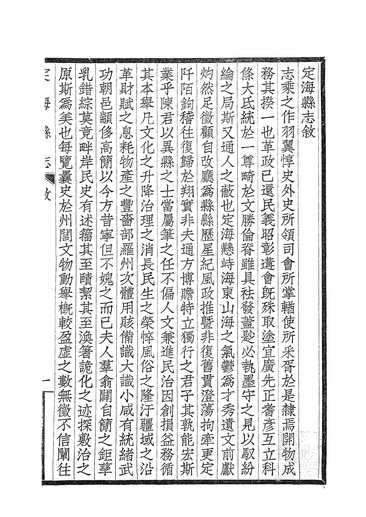 定海縣志敘
志乘之作羽翼惇史外史所領司會所掌輶使所采胥於是隸焉開物成
務其揆一也革政已還民義昭彰遘會旣殊取塗宜廣先正耆彥互立科
條大氐統於一尊畸於文勝倫脊雖具社發蓋尠必執墨守之見以馭紛
綸之局斯又通人之蔽也定海懸峙海東山海之氣鬱爲才秀遺文前獻
灼然足徵顧自改廳爲縣縣歷星紀風政推曁非復舊貫澄蕩拘牽更定
阡陌鉤稽往復歸於翔實非夫通方博贍特立獨行之君子其孰能宏斯
業乎陳君以異縣之士當屬筆之任不偏人文兼進民治因創損益務循
其本舉凡文化之升降治理之消長民生之榮悴風俗之隆汙疆域之沿
革財賦之息耗物產之豐嗇部羅州次體用賅備識大識小咸有統緒武
功朝邑顓侈高簡以今方昔寧但不媿之而已夫人羣奧開自簡之鉅孳
乳錯綜莫竟畔岸民史有述籀其至賾絜其至渙箸詭化之迹探斁治之
原斯爲美也每覽曩史於州閭文物動舉槪較盈虛之數無徵不信闡往
定海縣志
敘
一